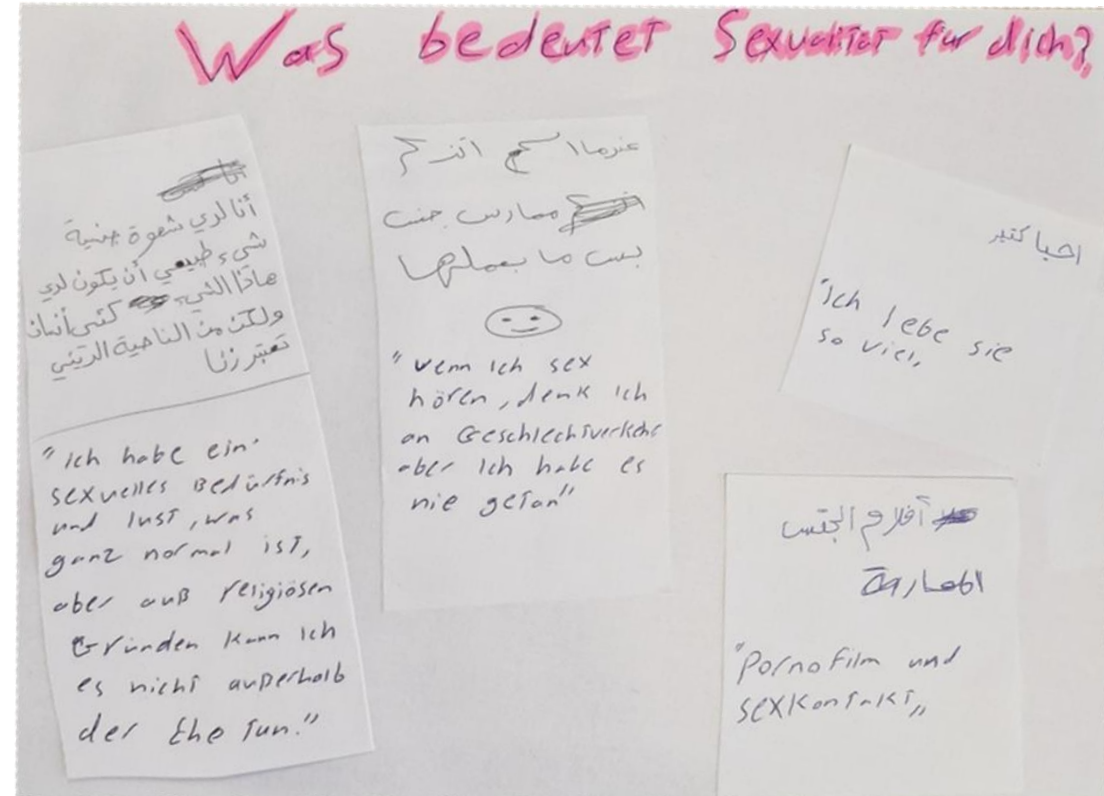 Was bedeutet Sexualität für dich?
أنا لدي شهوة جنسية
شيء طبيعي أن يكون لدي
هاذا الشيء كئي أنسان
ولكن من الناحية الديني
تعتبر زنا
"Ich habe ein
sexuelles Bedürfnis
und lust, was
ganz normal ist,
aber auß religiösen
Gründen kann ich
es nicht außerhalb
der Ehe tun."
عندما اسمع
ممارس جنس
بس ما بعملها
"wenn ich sex
hören, denk ich
an Geschlechtverkehr
aber ich habe es
nie getan"
احبا كتير
"Ich lebe sie
so viel"
أفلام الجنس
"Pornofilm und
sexkontakt"